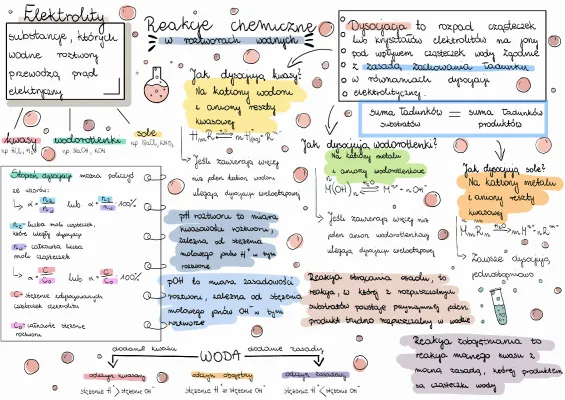 Elektrolity
substancje, których
wodne roztwory
przewodzą prąd
elektryczny
kwasy
np HCl,
wodorotlenki
np NaOH, KOH
sole
np NaCl, KNO₃
Reakcje chemiczne
w roztworach wodnych
Dysocjacja to rozpad cząsteczek
lub kryształów elektrolitów na jony
pod wpływem cząsteczek wody zgodnie
z zasadą zachowania ładunku
w równaniach dysocjacji
elektrolitycznej.
suma ładunków = suma ładunków
substratów produktów
Jak dysocjują kwasy?
Na kationy wodoru
i aniony reszty
kwasowej
Jeśli zawierają więcej
niż jeden kation wodoru
ulegają dysocjacji wielostopniowej
Jak dysocjują wodorotlenki?
Na kationy metalu
i aniony wodorotlenkowe
M(OH)ₙ ⇄ Mⁿ⁺ + nOH⁻
Jeśli zawierają więcej niż
jeden anion wodorotlenkowy
ulegają dysocjacji wielostopniowej
Jak dysocjują sole?
Na kationy metalu
i aniony reszty
kwasowej
Zawsze dysocjują
jednostopniowo
Stopień dysocjacji można policzyć
ze wzorów:
lub
100%
liczba moli cząsteczek,
które uległy dysocjacji
całkowita liczba
moli cząsteczek
lub
100%
C - stężenie zdysocjowanych
cząsteczek elektrolitu
C₀ - całkowite stężenie
roztworu
pH roztworu to miara
kwasowości roztworu,
zależna od stężenia
molowego jonów H⁺ w tym
roztworze
pOH to miara zasadowości
roztworu, zależna od stężenia
molowego jonów OH⁻ w tym
roztworze
Reakcja strącania osadu, to
reakcja, w której z rozpuszczalnych
substratów powstaje przynajmniej jeden
produkt trudno rozpuszczalny w wodzie
Reakcja zobojętniania to
reakcja mocnego kwasu z
mocną zasadą, której produktem
są cząsteczki wody
dodanie kwasu
WODA
dodanie zasady
odczyn kwasowy
stężenie H⁺ > stężenie OH⁻
odczyn obojętny
stężenie H⁺ = stężenie OH⁻
odczyn zasadowy
stężenie H⁺ < stężenie OH⁻